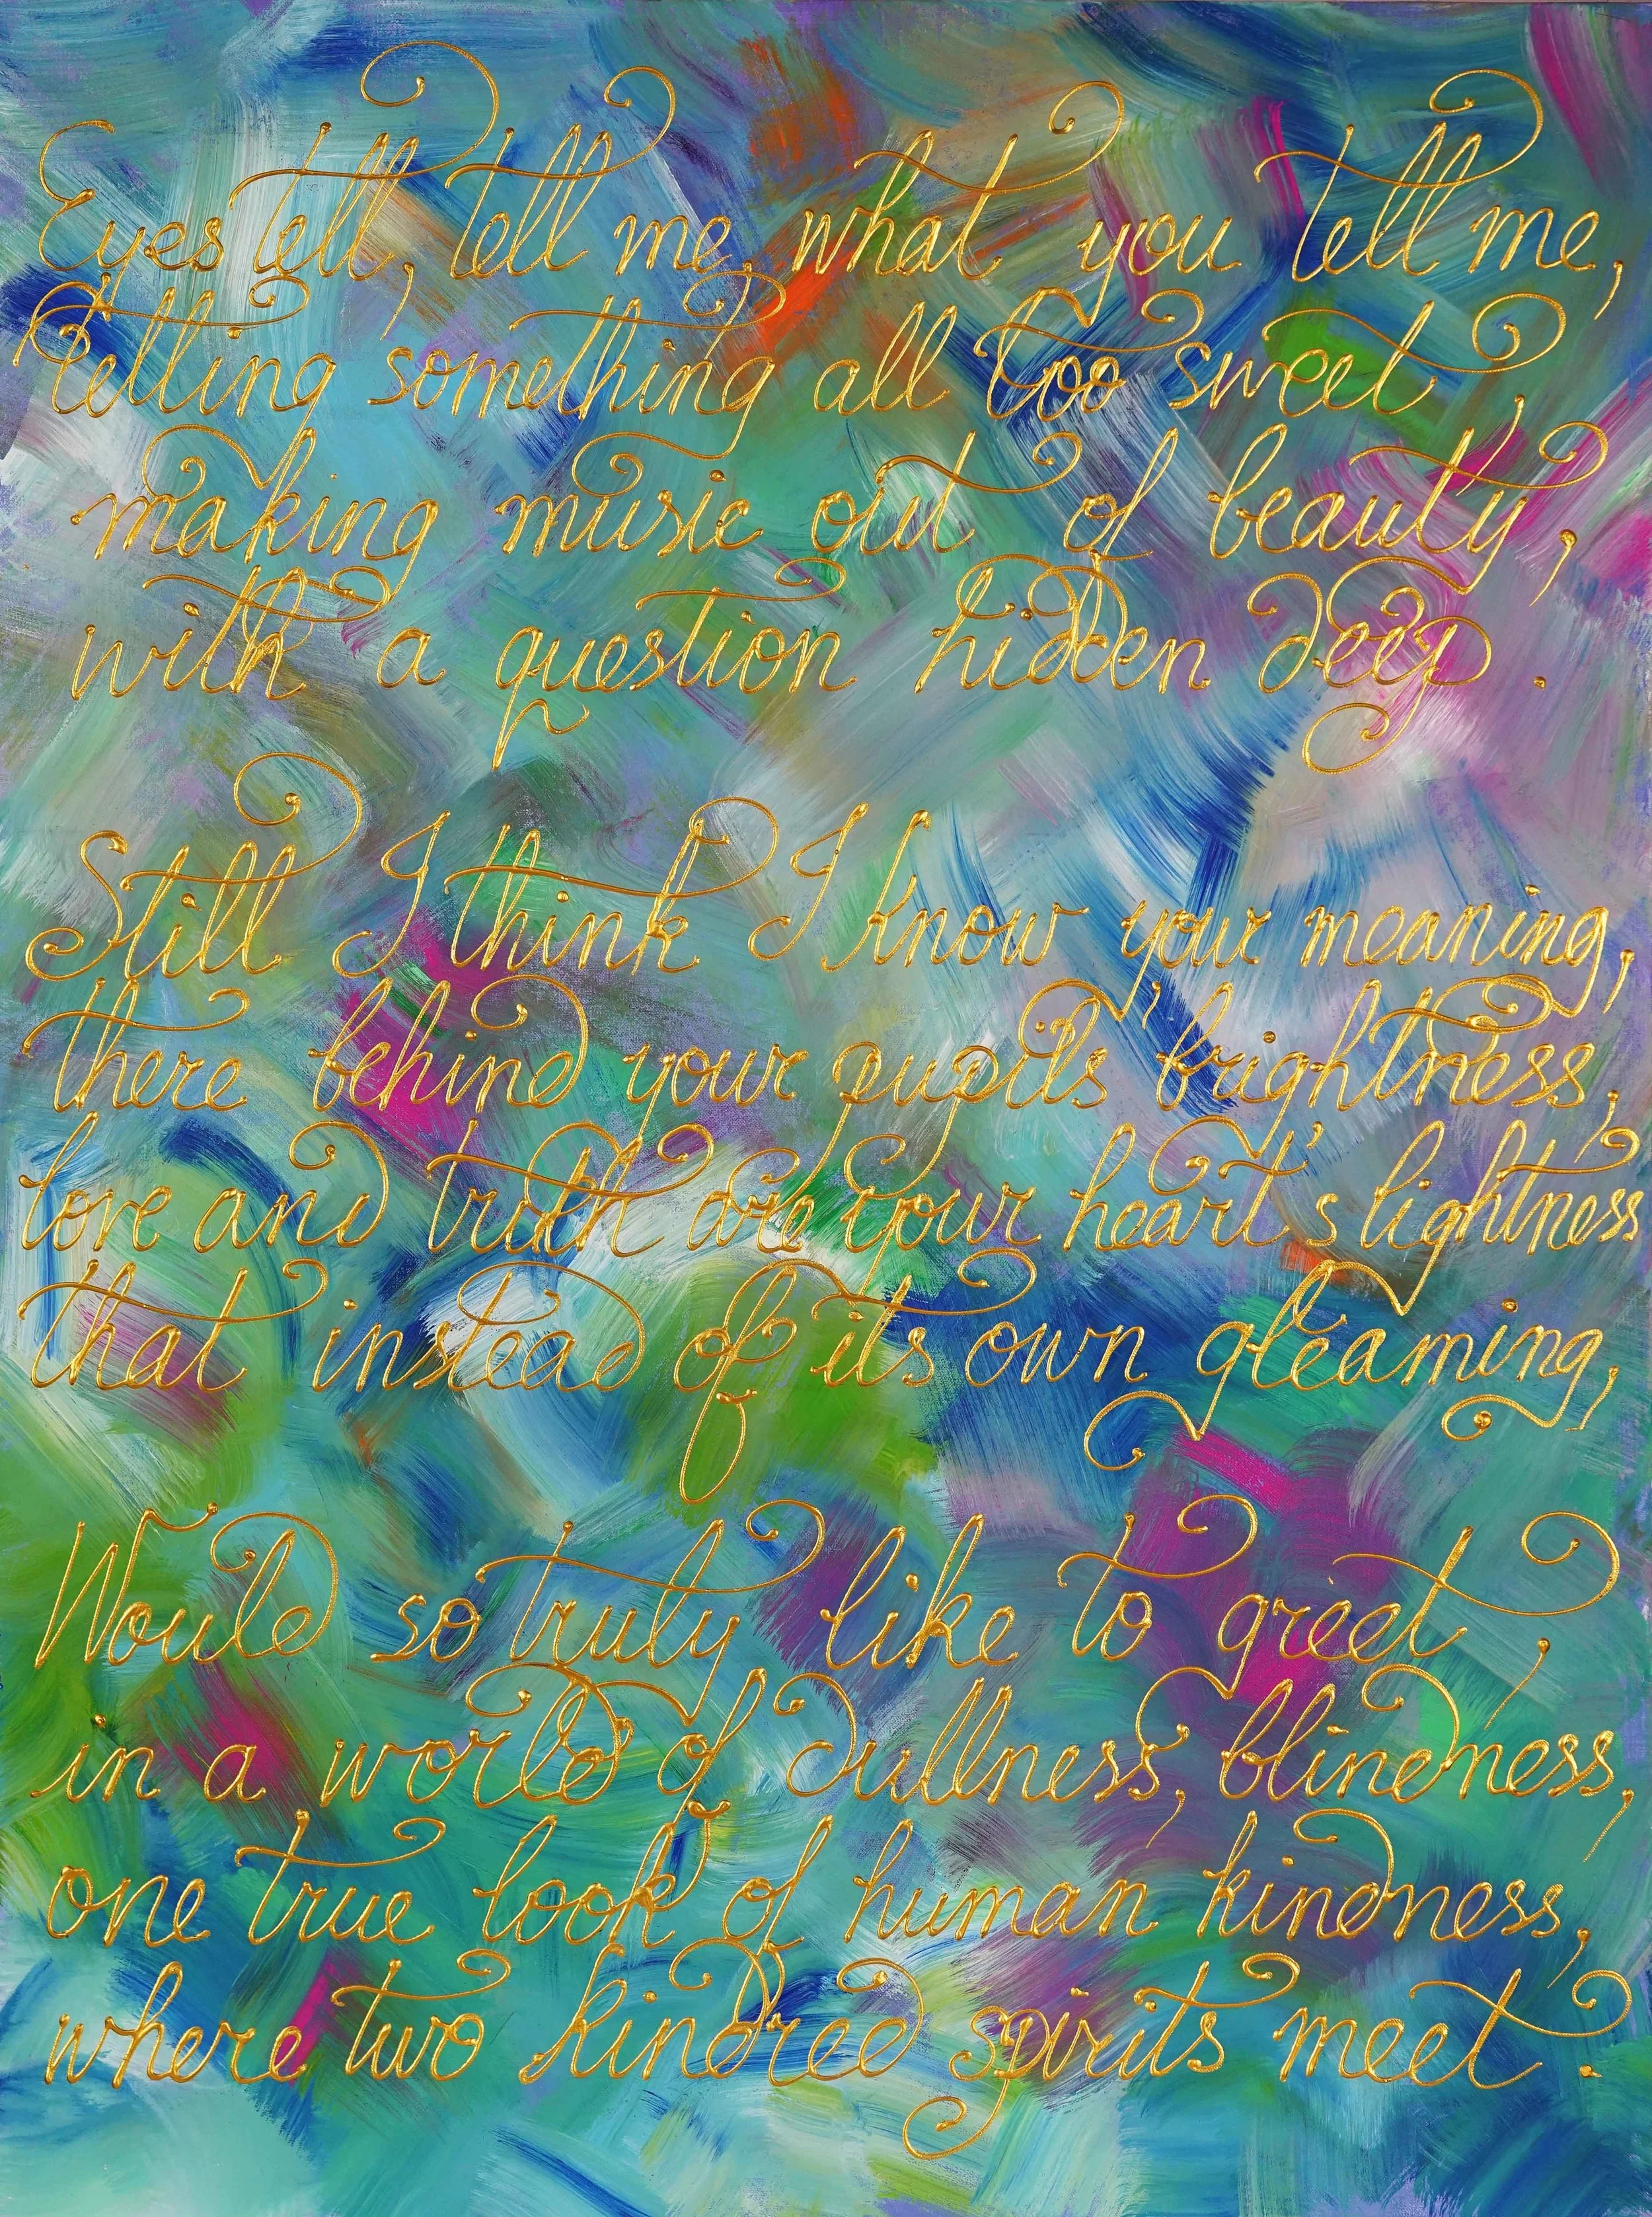 Eyes tell, tell me, what you tell me,
telling something all too sweet,
making music out of beauty,
with a question hidden deep.
Still I think I know your meaning,
there behind your pupils' brightness,
love and truth are your heart's lightness
that instead of its own gleaming,
Would so truly like to greet,
in a world of dullness, blindness,
one true look of human kindness,
where two kindred spirits meet.